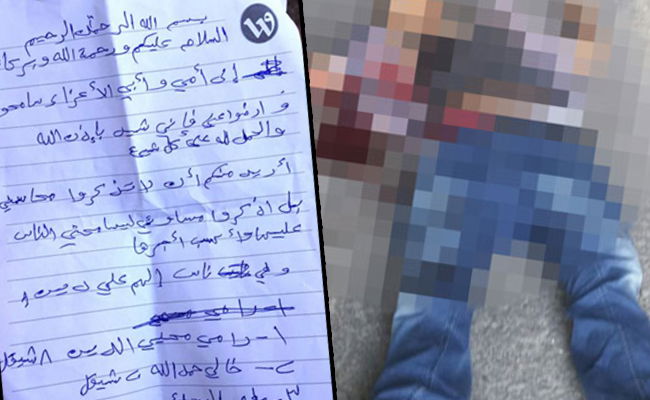 بسم الله الرحمن الرحيم
السلام عليكم ورحمة الله وبركا
إلى أمي وأبي الأعزاء سامحو
وارضوا عني فإني شهيد بإذن الله
والحمد لله على كل شيء
أريد منكم أن لا تذكروا محاسني
بل اذكروا مساوئي ليسامحني الناس
عليها وأكسب أجرها
وفي ناس إلهم علي دين
١- رامي محيي الدين ٨ شيقل
٢- خالي حمدالله ٢ شيقل